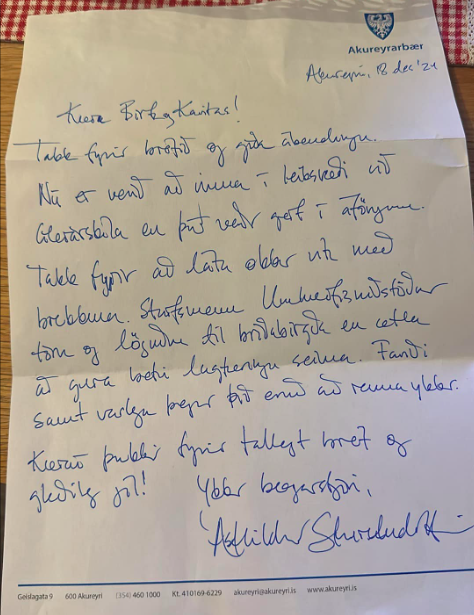 Akureyrarbær
Akureyri, 18 des '24
Kæra Birta og Karítas!
Takk fyrir bréfið og góða ábendingu.
Nú er verið að vinna í leiksvæði við
Glerárskóla en það verður gert í áföngum.
Takk fyrir að láta okkur vita með
brekkuna. Starfsmenn Umhverfismiðstöðvar
fóru og löguðu til bráðabirgða en ætla
að gera betri lagfæringu seinna. Farið
samt varlega þegar þið eruð að renna ykkur.
Kærar þakkir fyrir fallegt bréf og
gleðileg jól!
Ykkar bæjarstjóri,
Ásthildur Sturludóttir
Geislagata 9 600 Akureyri (354) 460 1000 Kt. 410169-6229 akureyri@akureyri.is www.akureyri.is